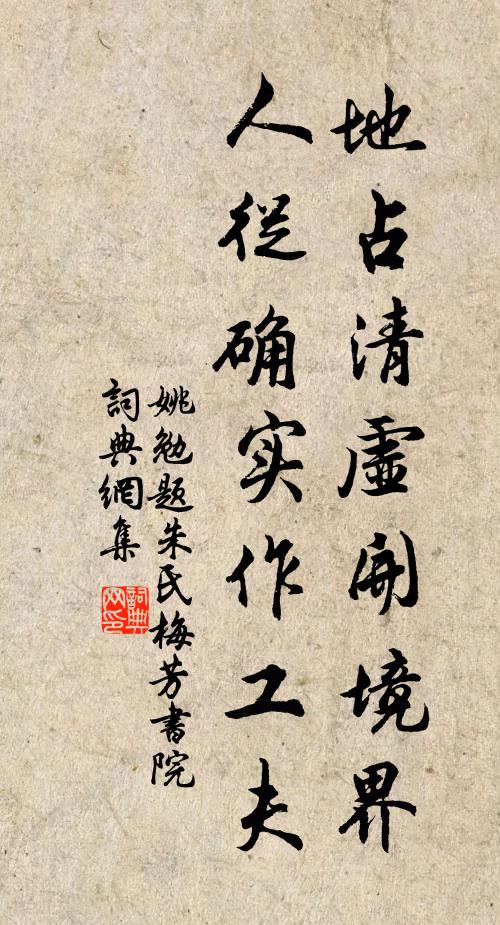 地占清虛開境界
人從确实作工夫
姚勉题朱氏梅芳書院
詞典網集
詞典网印